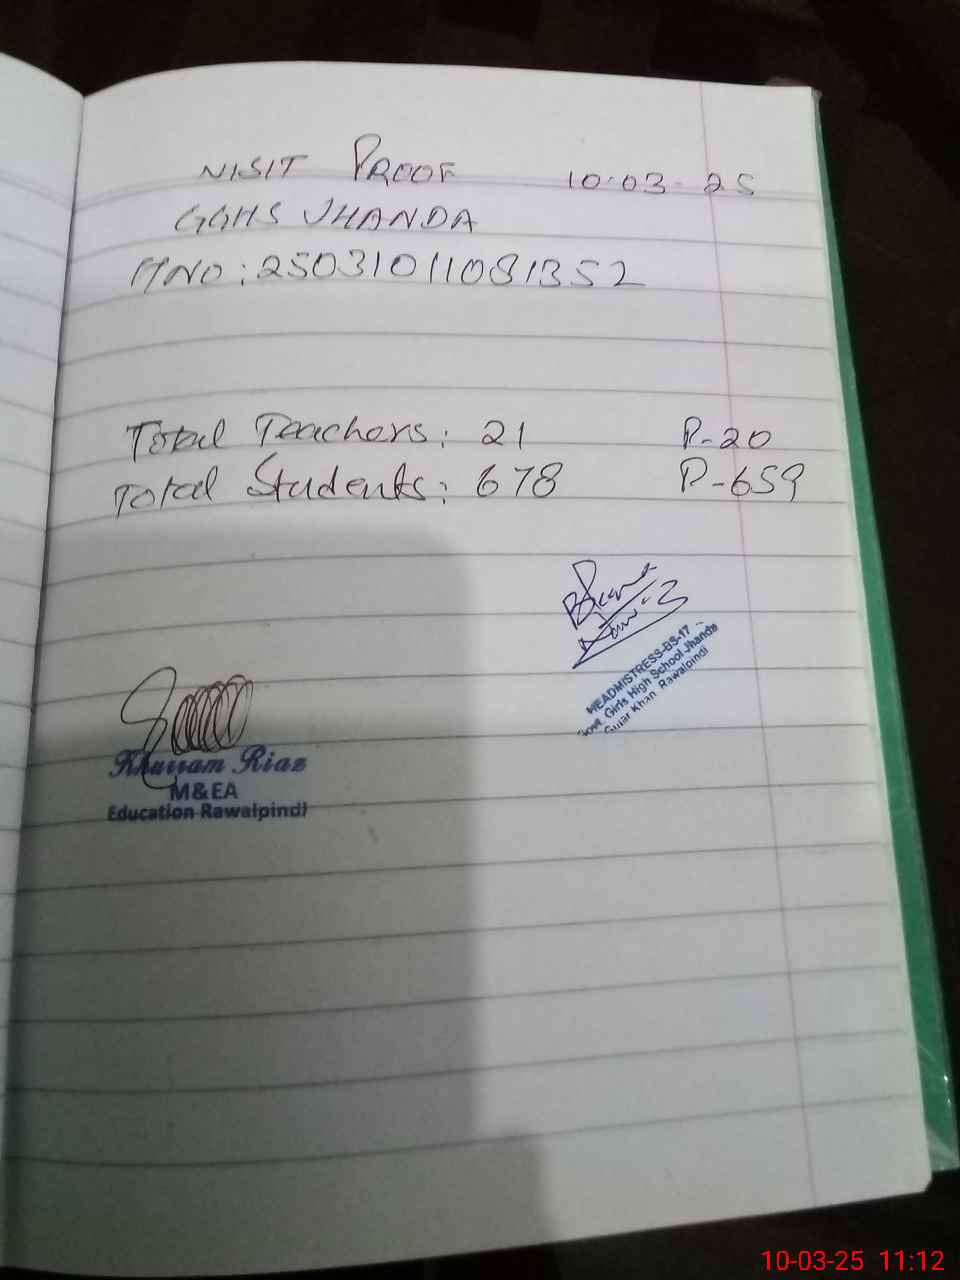 VISIT PROOF 10-03-25
GGHS JHANDA
ITNO: 25031011081352
Total Teachers: 21 P-20
Total Students: 678 P-659
HEADMISTRESS-BS-17
Govt. Girls High School Jhanda
Gujar Khan Rawalpindi
Khurram Riaz
M&EA
Education Rawalpindi
10-03-25 11:12